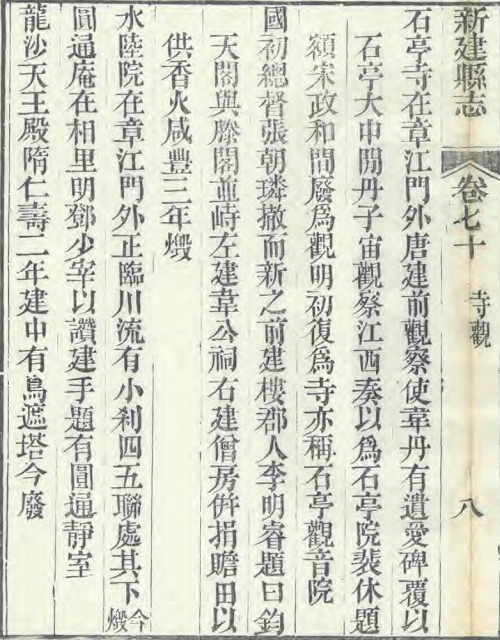 新建縣志 卷七十 寺觀 八
石亭寺在章江門外唐建前觀察使韋丹有遺愛碑覆以
石亭大中間丹子宙觀察江西奏以爲石亭院裴休題
額宋政和間廢爲觀明初復爲寺亦稱石亭觀音院
國初總督張朝璘撤而新之前建樓郡人李明睿題曰鈞
天閣與滕閣並峙左建韋公祠右建僧房併捐贍田以
供香火咸豐三年燬
水陸院在章江門外正臨川流有小刹四五聯處其下今燬
圓通庵在相里明鄧少宰以讚建手題有圓通靜室
龍沙天王殿隋仁壽二年建中有鳥遮塔今廢